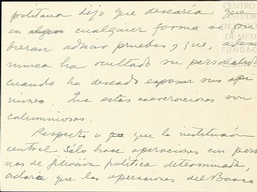 politana dijo que desearía que
en cualquier forma se pu
dieran aducir pruebas y que, además
nunca ha ocultado su personalidad
cuando ha deseado exponer sus opi
niones. Que estas aseveraciones son
calumniosas.
Respecto a que la institución
central sólo hace operaciones con perso
nas de filiación política determinada,
aclara que las operaciones del Banco
CENTRO